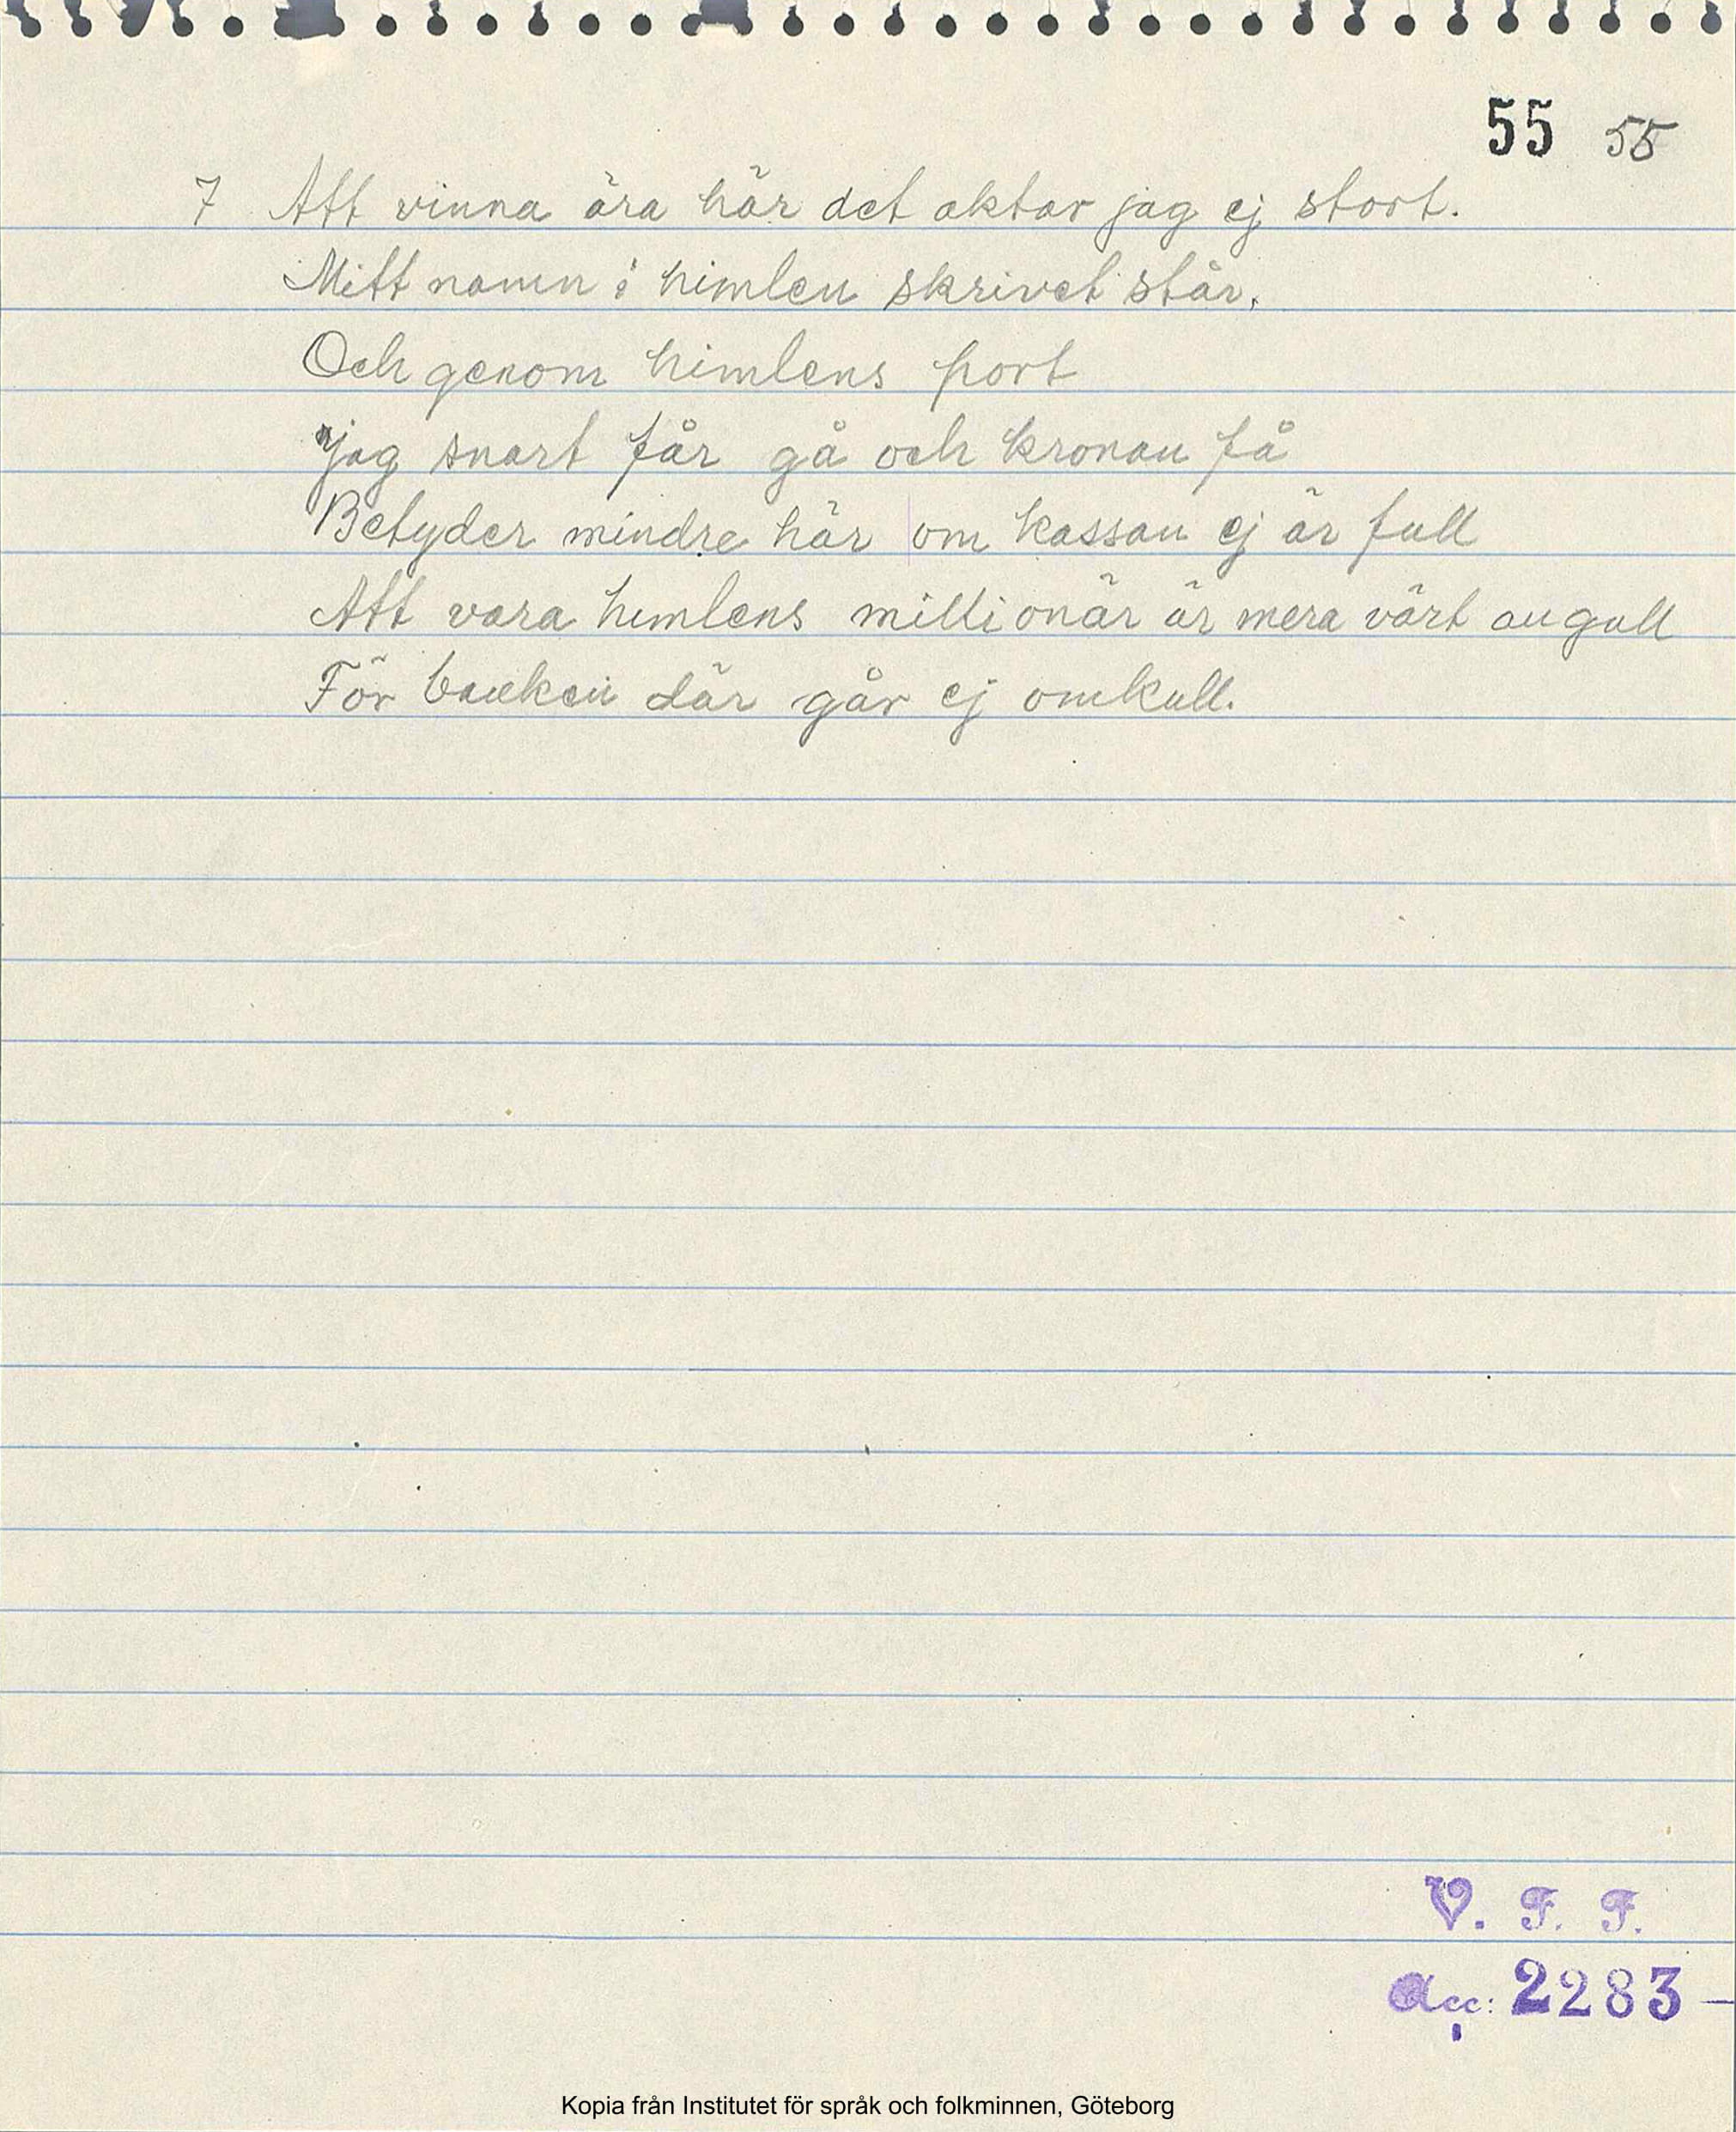 55 55
7 Att vinna ära här det aktar jag ej stort.
Mitt namn i himlen skrivet står.
Och genom himlens port
jag snart får gå och kronan få
Betyder mindre här om kassan ej är full
Att vara himlens millionär är mera värt än gull
För banken där går ej omkull.
V. F. F.
Acc: 2283 -
Kopia från Institutet för språk och folkminnen, Göteborg